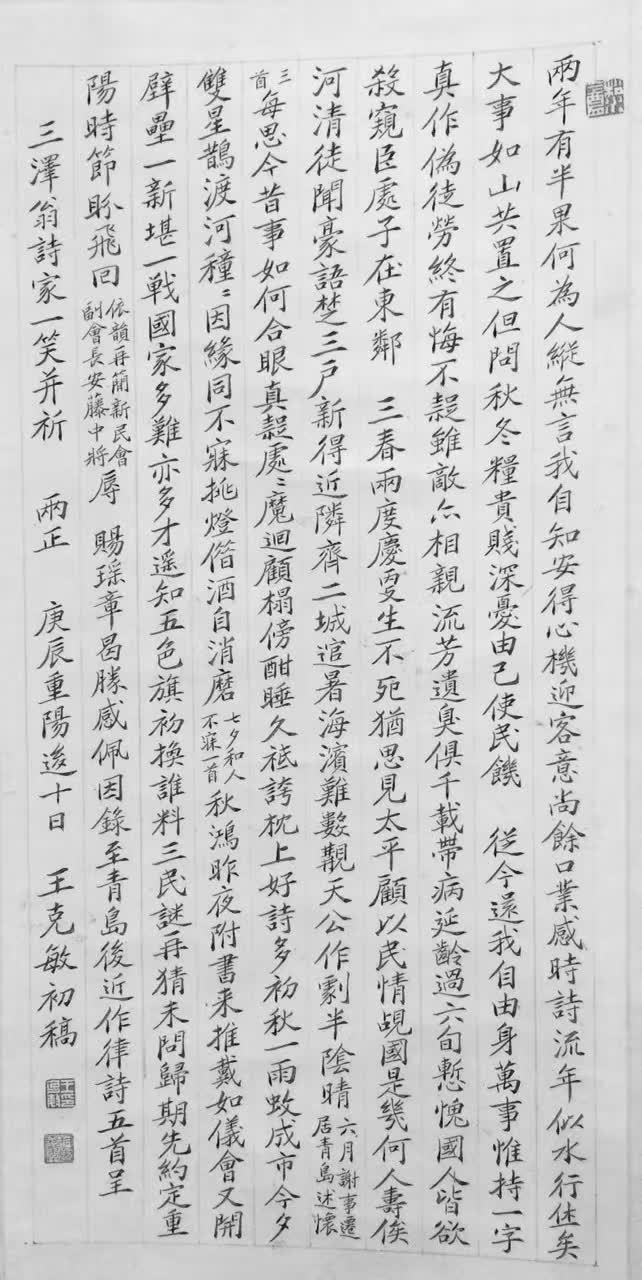 兩年有半果何為人縱無言我自知安得心機迎客意尚餘口業感時詩流年似水行休矣
大事如山共置之但問秋冬糧貴賤深憂由己使民饑　從今還我自由身萬事惟持一字
真作偽徒勞終有悔不疑雖敵亦相親流芳遺臭俱千載帶病延齡過六旬慙愧國人皆欲
殺窺臣處子在東鄰　三春兩度慶更生不死猶思見太平顧以民情覘國是幾何人壽俟
河清徒聞豪語楚三戶新得近隣齊二城逭暑海濱難數覯天公作劇半陰晴六月謝事遷居青島述懷
三首每思今昔事如何合眼真疑處〻魔迴顧榻傍酣睡久祗誇枕上好詩多初秋一雨蚊成市今夕
雙星鵲渡河種〻因緣同不寐挑燈偕酒自消磨七夕和人不寐一首秋鴻昨夜附書來推戴如儀會又開
壁壘一新堪一戰國家多難亦多才遥知五色旗初換誰料三民謎再猜未問歸期先約定重
陽時節盼飛回依韻再簡新民會副會長安藤中將辱　賜瑤章曷勝感佩因錄至青島後近作律詩五首呈
三澤翁詩家一笑并祈　兩正　庚辰重陽後十日　王克敏初稿